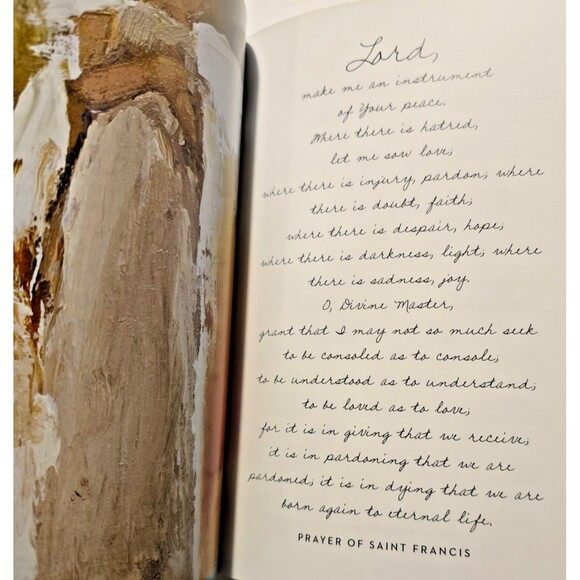 Lord,
make me an instrument
of Your peace.
Where there is hatred,
let me sow love;
where there is injury, pardon; where
there is doubt, faith;
where there is despair, hope;
where there is darkness, light; where
there is sadness, joy.
O, Divine Master,
grant that I may not so much seek
to be consoled as to console;
to be understood as to understand;
to be loved as to love;
for it is in giving that we receive;
it is in pardoning that we are
pardoned; it is in dying that we are
born again to eternal life.
PRAYER OF SAINT FRANCIS